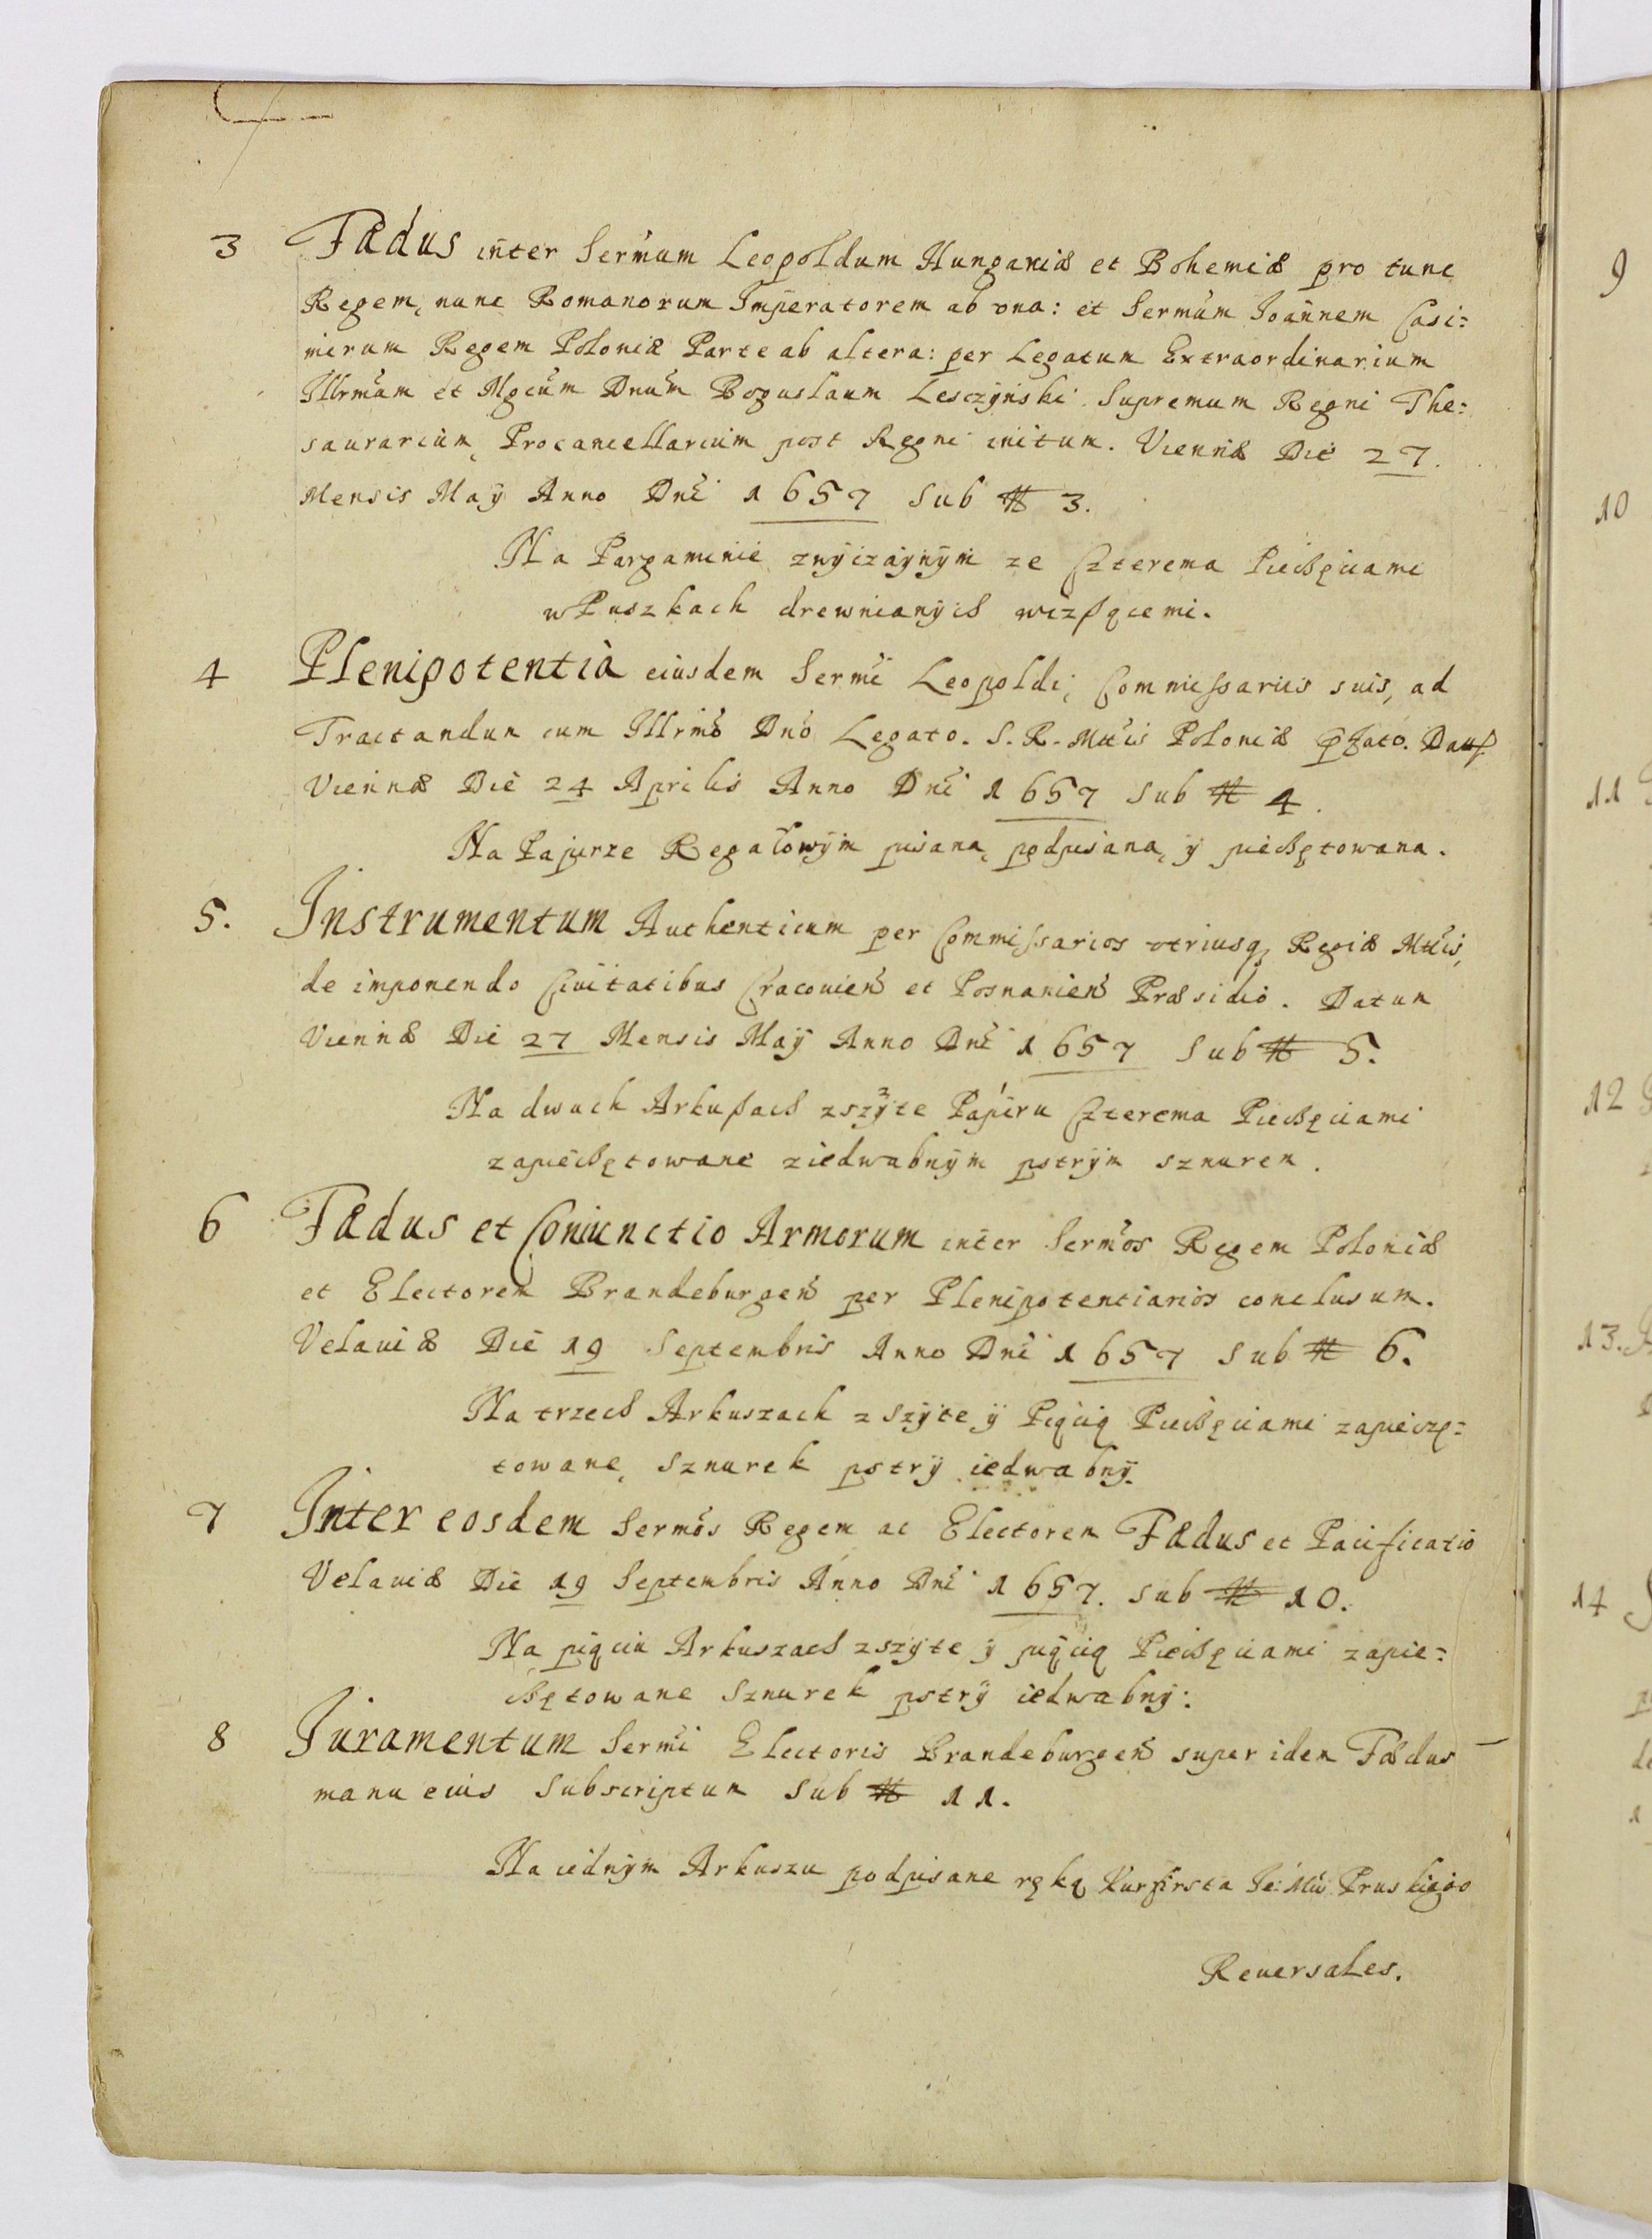 3 Fædus inter Sermum Leopoldum Hungariæ et Bohemiæ pro tunc
Regem, nunc Romanorum Imperatorem ab vna: et Sermum Joannem Casi=
mirum Regem Poloniæ Parte ab altera: per Legatum Extraordinarium
Illrmum et Mgcum Dnum Boguslaum Lesczynski Supremum Regni The=
saurarium, Procancellarium post Regni initum. Viennæ Die 27.
Mensis Maÿ Anno Dni 1657 sub # 3.
Na Pargaminie zwÿczaÿnÿm ze Czterema Pieczęciami
w Puszkach drewnianÿch wiszącemi.
4 Plenipotentia eiusdem Sermi Leopoldi, Commissariis suis, ad
Tractandum cum Illrmo Dno Legato. S. R. Mttis Poloniæ Dat
Viennæ Die 24 Aprilis Anno Dni 1657 sub # 4.
Na Papierze Regałowÿm pisana, podpisana, ÿ pieczętowana.
5. Instrumentum Authenticum per Commissarios vtriusq Regiæ Mttis,
de imponendo Ciuitatibus Cracouien et Posnanien Præsidio. Datum
Viennæ Die 27 Mensis Maÿ Anno Dni 1657 sub # 5.
Na dwuch Arkuszach zszÿte Papiru Czterema Pieczęciami
zapieczętowane ziedwabnÿm pstrÿm sznurem.
6 Fædus et Coniunctio Armorum inter Sermos Regem Poloniæ
et Electorem Brandeburgen per Plenipotentiarios conclusum.
Velauiæ Die 19 Septembris Anno Dni 1657 sub # 6.
Na trzech Arkuszach zszÿte ÿ Piącią Pieczęciami zapieczę=
towane, sznurek pstrÿ iedwabnÿ.
7 Inter eosdem Sermos Regem ac Electorem Fædus et Pacificatio
Velauiæ Die 19 Septembris Anno Dni 1657. sub # 10.
Na piąciu Arkuszach zszÿte ÿ piącią Pieczęciami zapie=
czętowane sznurek pstrÿ iedwabnÿ.
8 Juramentum Sermi Electoris Brandeburgen super idem Fædus
manu eius subscriptum sub # 11.
Na iednÿm Arkuszu podpisane ręką Kurfirsta Je: Mci Pruskiego
Reuersales.
9
10
11
12
13.
14